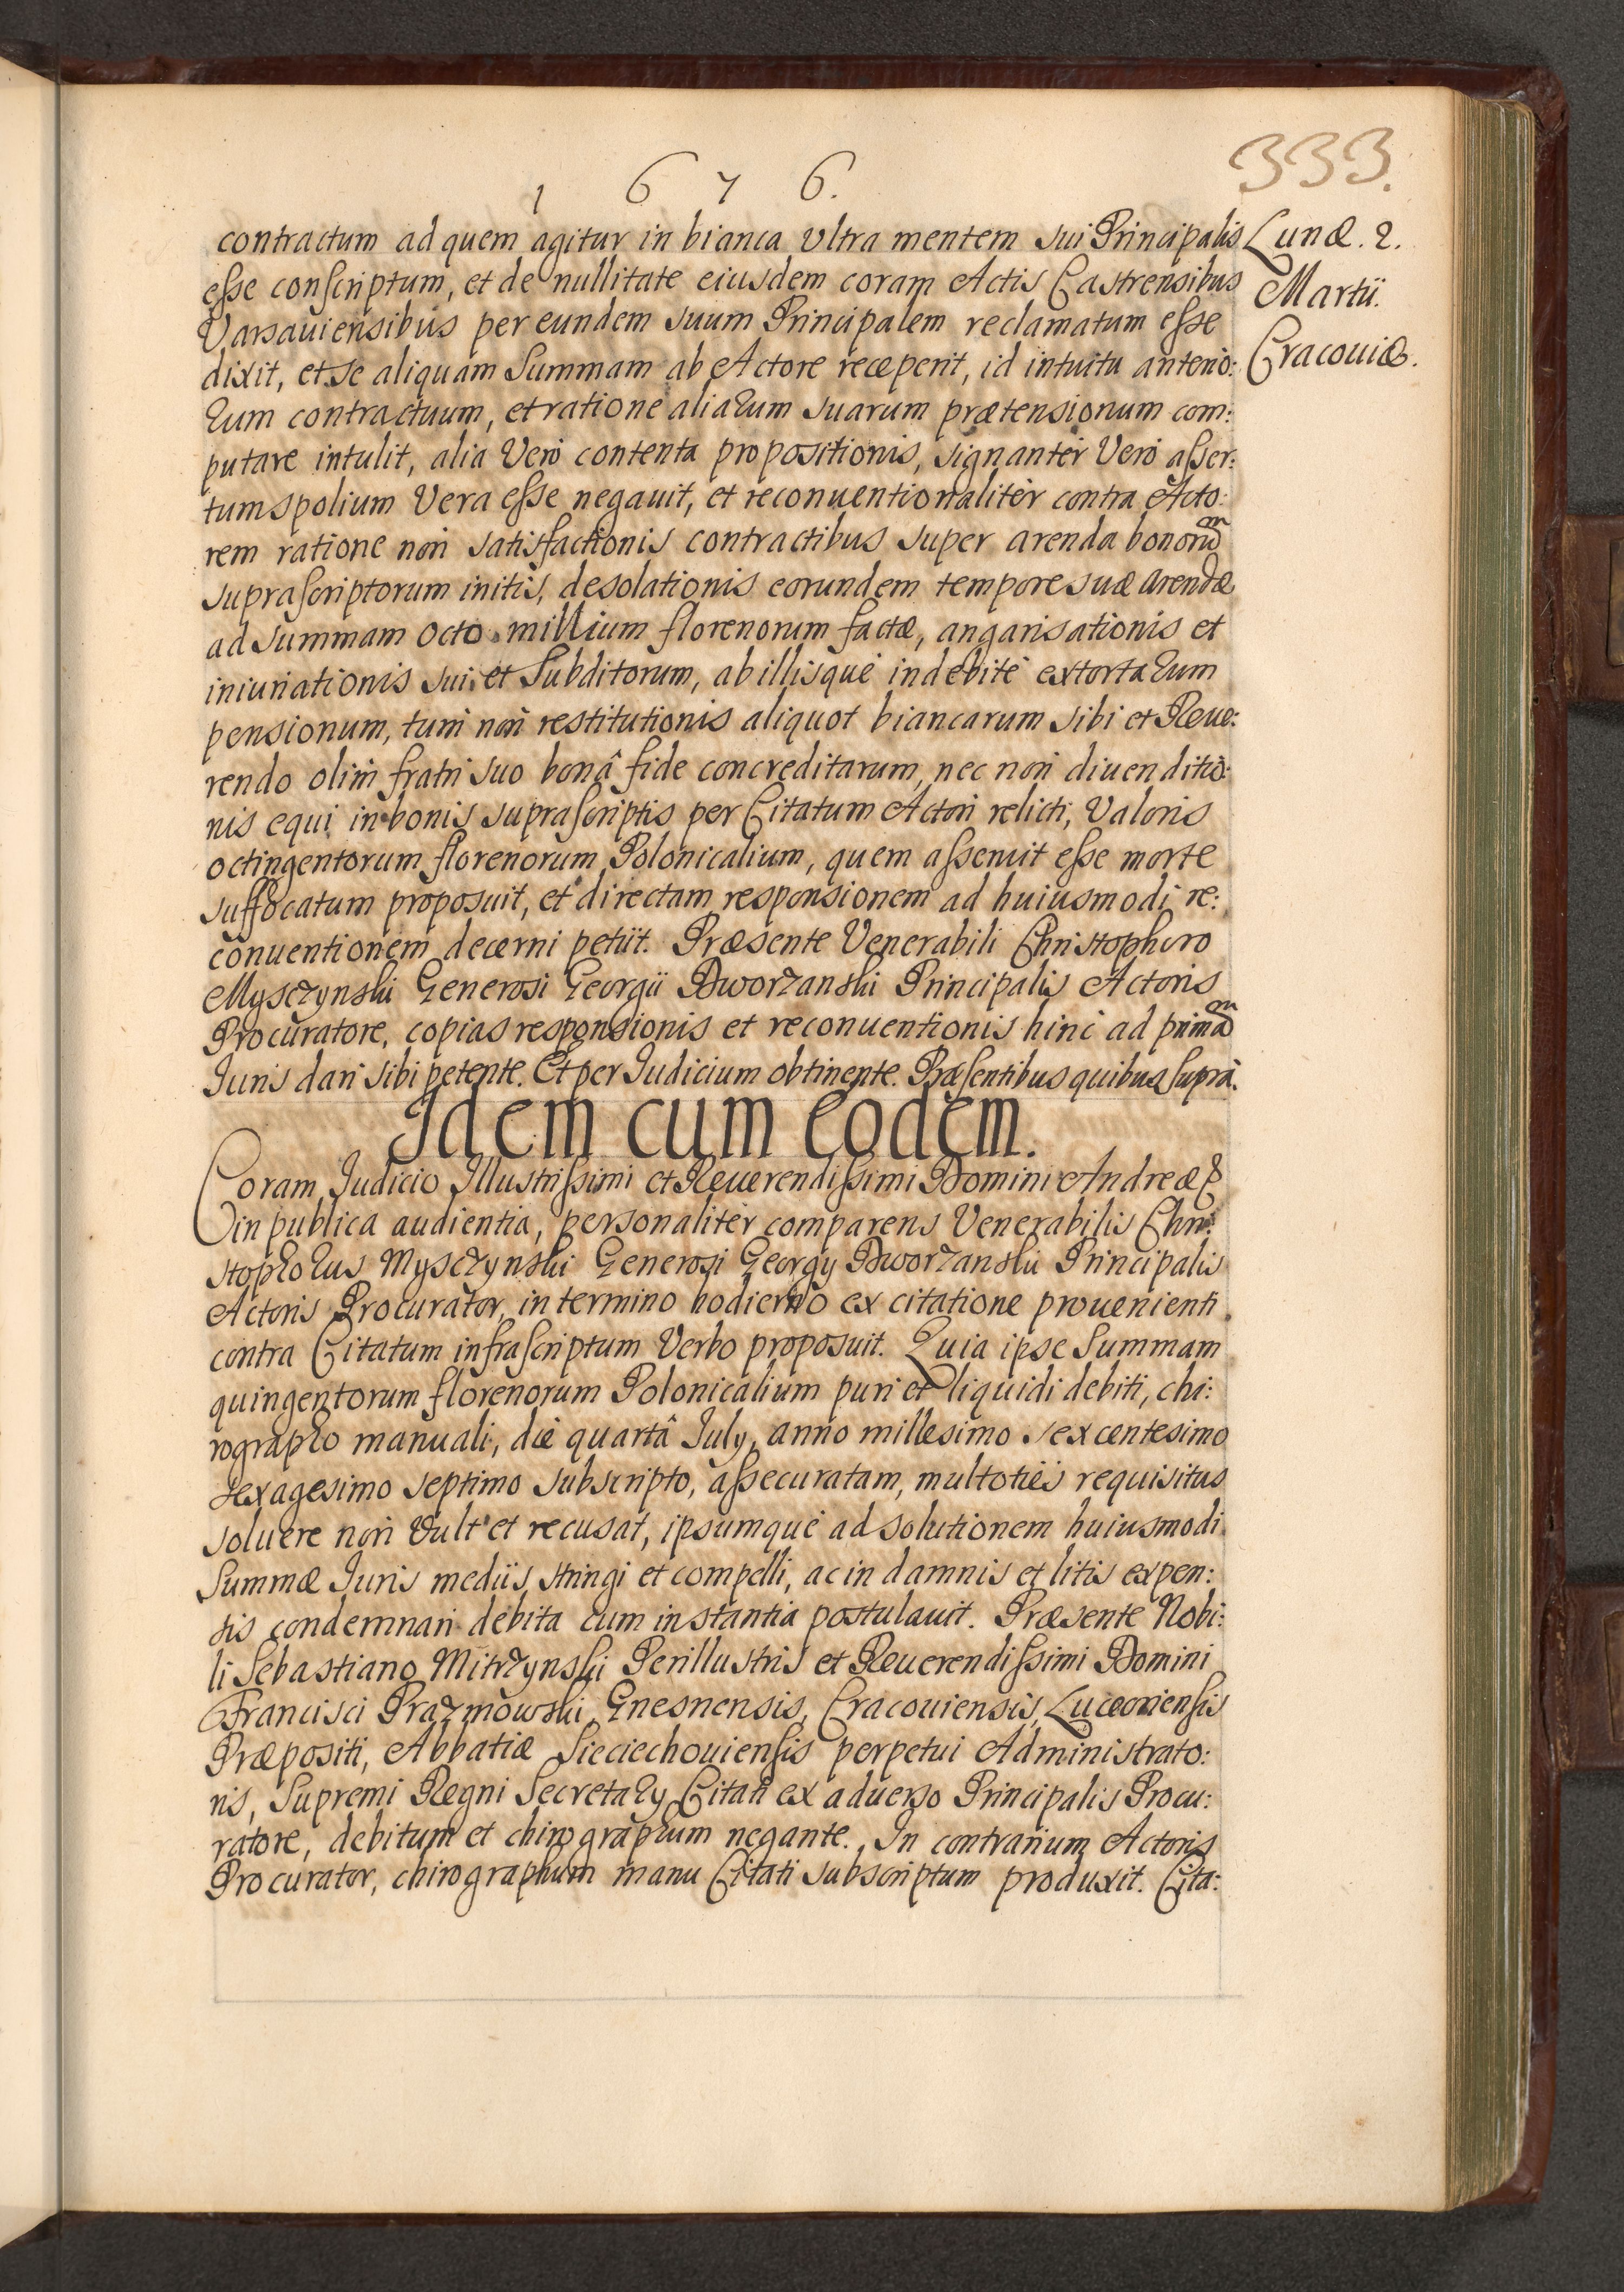 333.
1 6 7 6.
contractum ad quem agitur in bianca Vltra mentem sui Principalis
Lunæ. 2.
Martii.
Cracouiæ.
esse conscriptum, et de nullitate eiusdem coram Actis Castrensibus
Varsauiensibus per eundem suum Principalem reclamatum esse
dixit, et se aliquam Summam ab Actore receperit, id intuitu anterio:
rum contractuum, et ratione aliarum suarum prætensionum com:
putare intulit, alia Verò contenta propositionis, signanter Verò asser:
tum spolium Vera esse negauit, et reconuentionaliter contra Acto:
rem ratione non satisfactionis contractibus super arenda bonorũ
suprascriptorum initis, desolationis eorundem tempore suæ arendæ
ad summam octo millium florenorum factæ, angarisationis et
iniuriationis sui et Subditorum, ab illisque indebitè extortarum
pensionum, tum non restitutionis aliquot biancarum sibi et Reue:
rendo olim fratri suo bonâ fide concreditarum, nec non diuenditio:
nis equi in bonis suprascriptis per Citatum Actori relicti, Valoris
octingentorum florenorum Polonicalium, quem asseruit esse morte
suffocatum proposuit, et directam responsionem ad huiusmodi re:
conuentionem decerni petiit. Præsente Venerabili Christophoro
Mysczynski Generosi Georgii Dworzanski Principalis Actoris
Procuratore, copias responsionis et reconuentionis hinc ad primã
Iuris dari sibi petente. Et per Iudicium obtinente. Præsentibus quibus supra.
Idem cum eodem.
Coram Iudicio Illustrissimi et Reuerendissimi Domini Andreæ &
in publica audientia, personaliter comparens Venerabilis Chri:
stophorus Mysczynski Generosi Georgy Dworzanski Principalis
Actoris Procurator, in termino hodierno ex citatione prouenienti
contra Citatum infrascriptum Verbo proposuit. Quia ipse Summam
quingentorum florenorum Polonicalium puri et liquidi debiti, chi:
rographo manuali, die quartâ July, anno millesimo sexcentesimo
sexagesimo septimo subscripto, assecuratam, multotiès requisitus
soluere non Vult et recusat, ipsumque ad solutionem huiusmodi
Summæ Iuris mediis stringi et compelli, ac in damnis et litis expen:
sis condemnari debita cum instantia postulauit. Præsente Nobi:
li Sebastiano Mitrzynski Perillustris et Reuerendissimi Domini
Francisci Prazmowski, Gnesnensis, Cracouiensis, Luceoriensis
Præpositi, Abbatiæ Sieciechouiensis perpetui Administrato:
ris, Supremi Regni Secretary Citati ex aduerso Principalis Procu:
ratore, debitum et chirographum negante. In contrarium Actoris
Procurator, chirographum manu Citati subscriptum produxit. Cita: